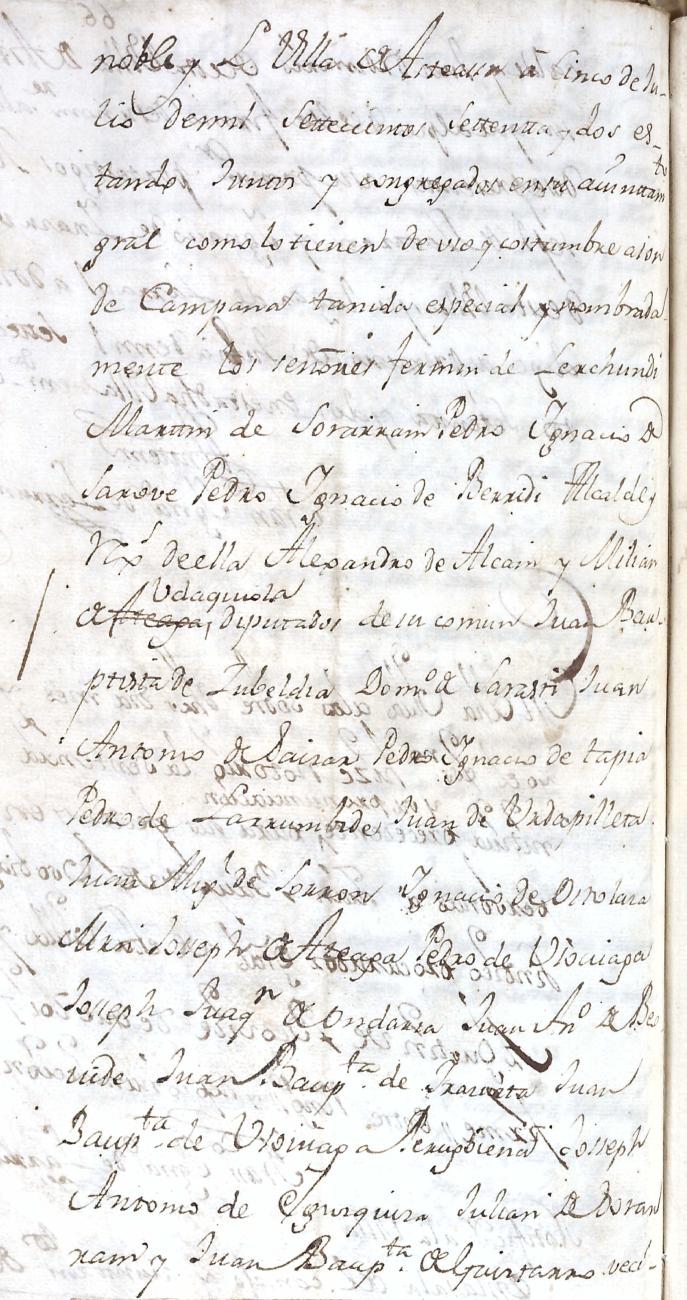 noble y L Villa de Asteasu a Cinco de Ju-
lio de mil Settecientos settenta y dos es-
tando Juntos y congregados en su aiuntam.to
gral como lo tienen de uso y costumbre a son
de Campana tanida especial y nombrada-
mente los señores fermin de Lerchundi
Martin de Sorarrain Pedro Ignacio de
Sarove Pedro Ignacio de Berridi Alcalde y
de ella Alexandro de Alcain y Milian
Udaquiola
de Arteaga, diputados de su comun Juan Bau-
ptista de Zubeldia Dom.o de Sarasti Juan
Antonio de Pedro Ignacio de tapia
Pedro de Larrumbide, Juan de Urdapilleta
Juan Mig.l de Sorron Ignacio de Ostolaza
Mrn Joseph de Arteaga Pedro de Usoviaga
Joseph Juaq.n de Ondarza Juan An.o de Be-
Juan Baup.ta de Irazusta Juan
Baup.ta de Usoviaga Joseph
Antonio de Julian de Soran
rain y Juan Baup.ta de Goistarro veci-